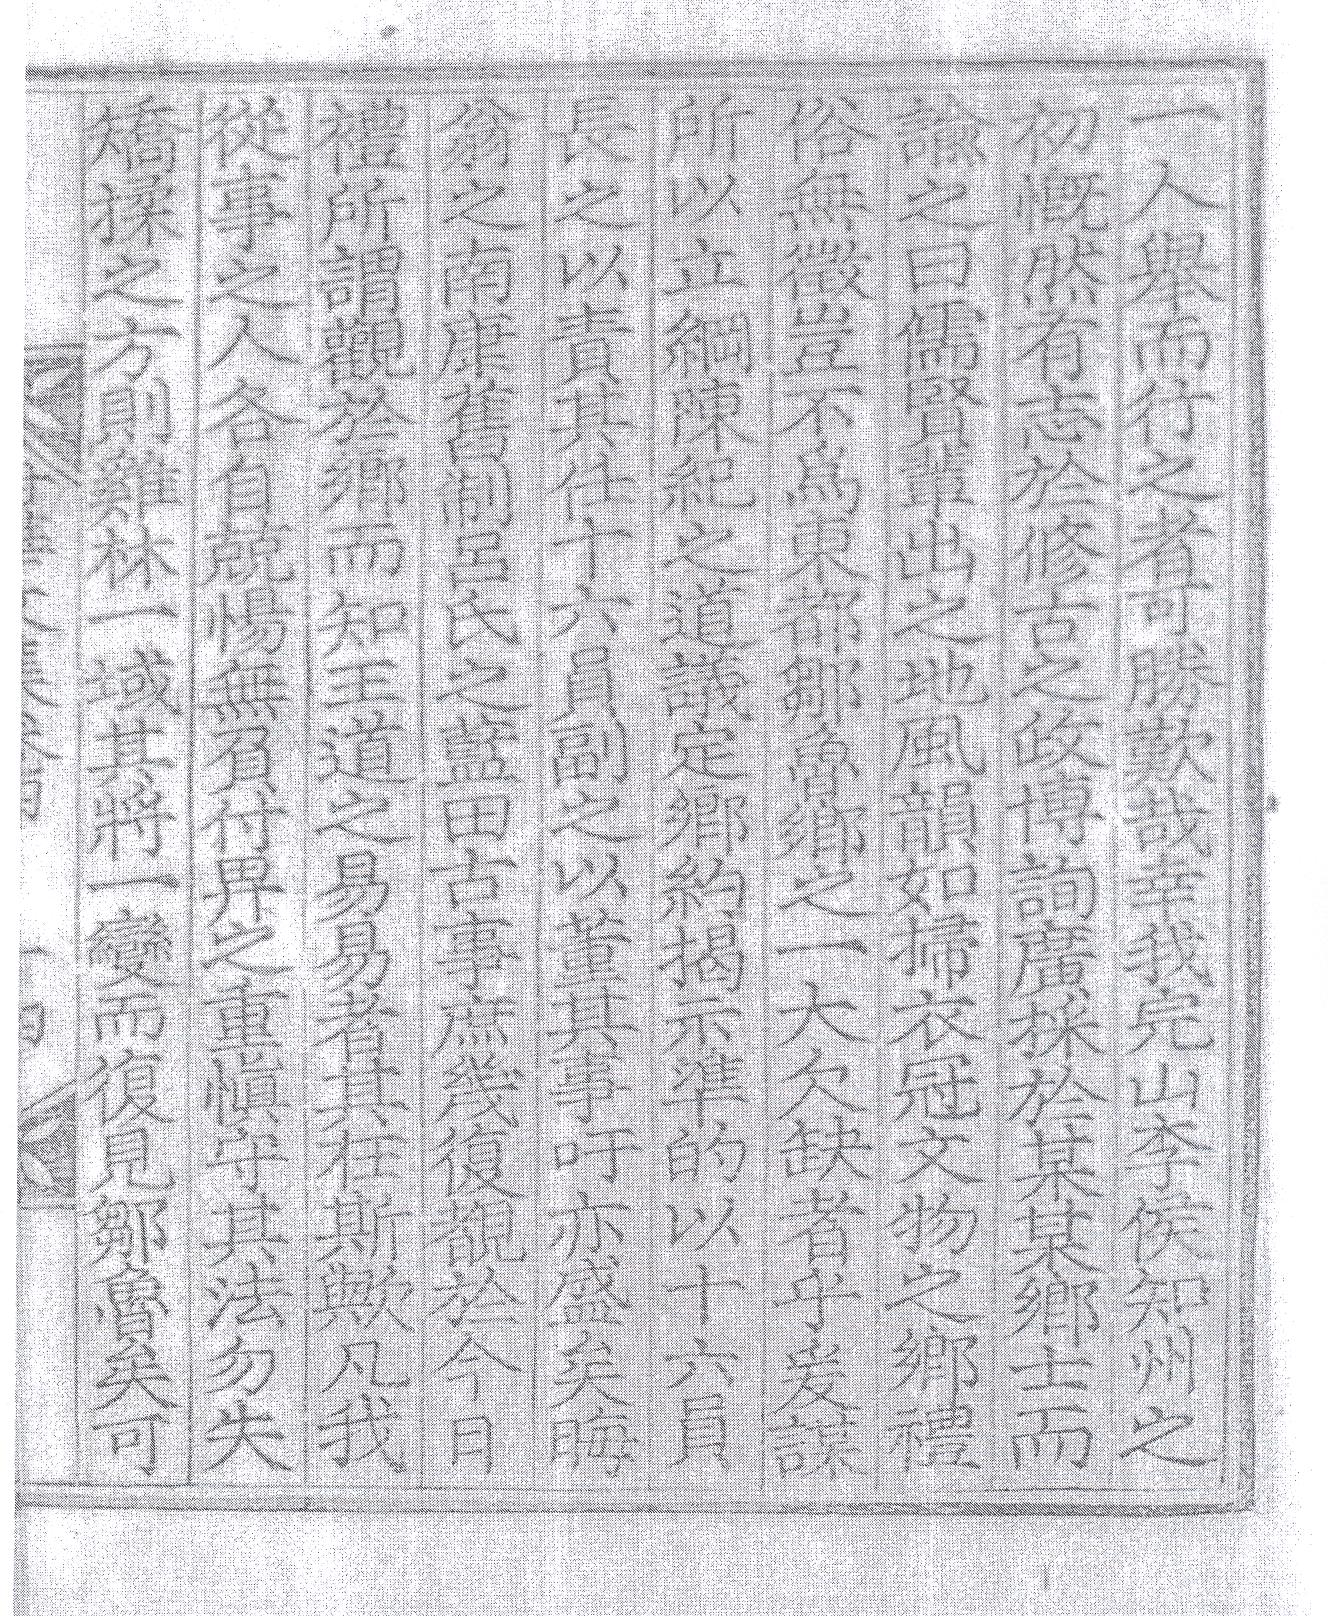 一人擧而行之者可勝歎哉幸我完山李侯知州之
初慨然有志於修古之政博詢廣採於某某鄉士而
諗之曰儒賢輩出之地風韻如掃衣冠文物之鄉禮
俗無徵豈不爲東都鄒魯鄉之一大欠缺者乎爰謀
所以立綱陳紀之道議定鄉約揭示準的以十六員
長之以責其任十六員副之以董其事吁亦盛矣晦
翁之南康舊制呂氏之藍田古事庶幾復覩於今日
禮所謂觀於鄉而知王道之易易者其在斯歟凡我
從事之人各自兢惕無負付畀之重愼守其法勿失
矯揉之方則雞林一域其將一變而復見鄒魯矣可